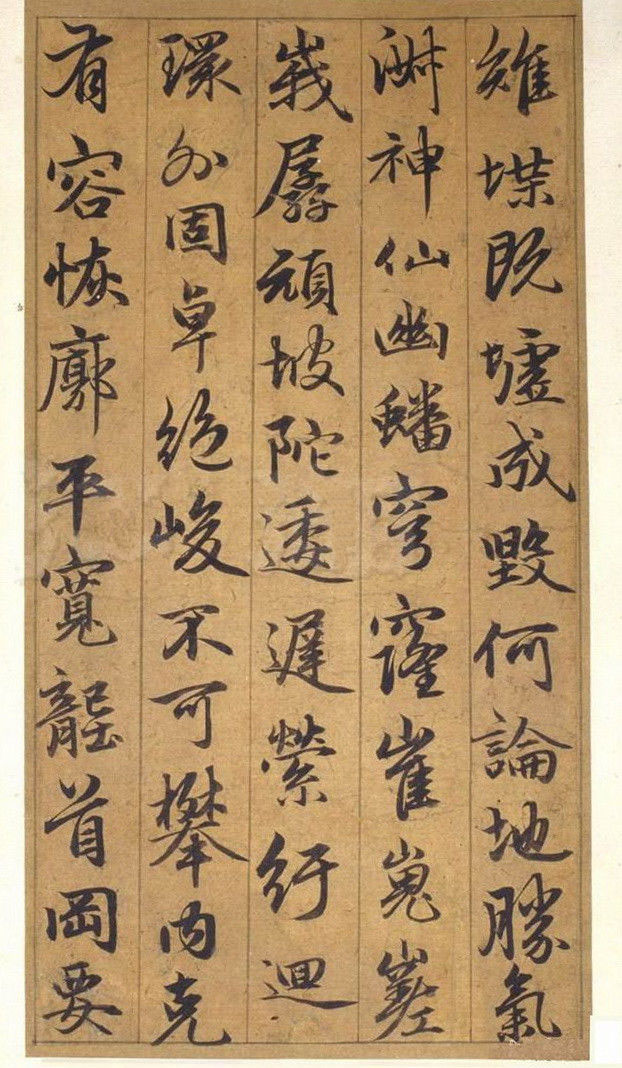 雉堞既墟成毀何論地勝氣
淵神仙幽蟠穹窿崔嵬嵳
峩孱頑坡陀逶遲縈紆迴
環外固卓絶峻不可攀内克
有容恢廓平寬壟首岡要